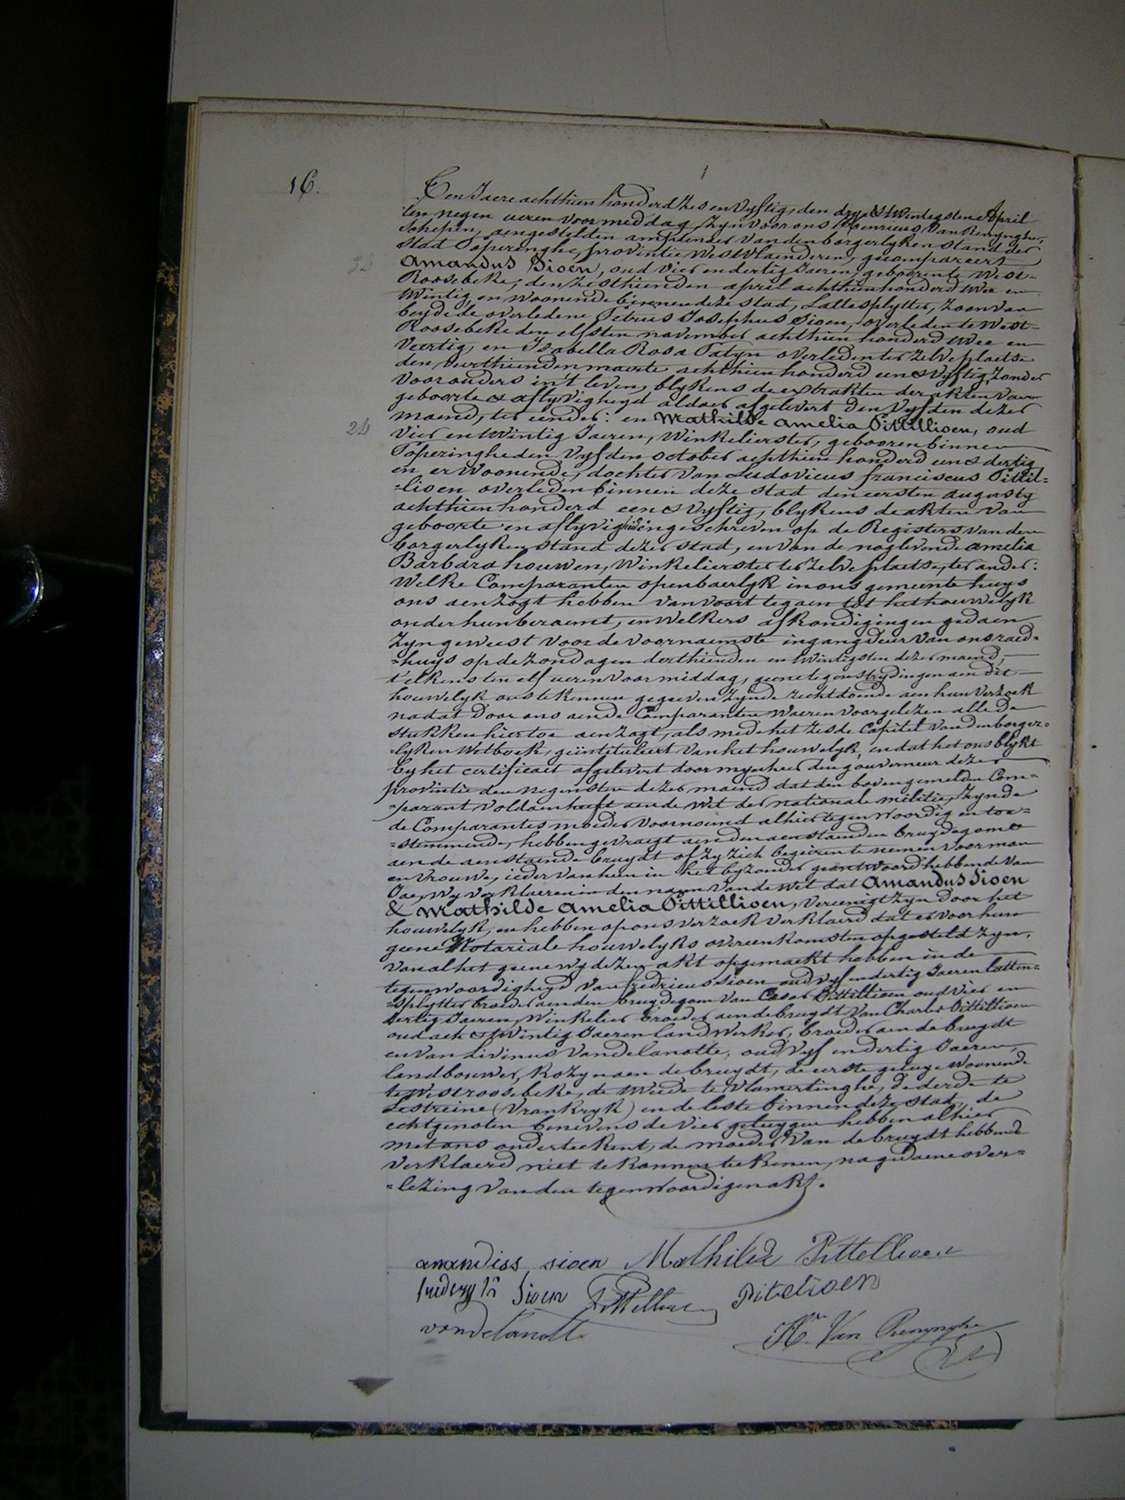 16.
Ten Jaere achthien honderd zes en vyftig, den dry & twintigsten April
ten negen ueren voormiddag, zyn voor ons Henricus Van Renynghe,
schepen, aengestelden amptenaer van den borgerlyken stand der
stad Poperinghe, provintie Westvlaenderen, gecompareert
23
Amandus Sioen, oud vier en dertig Jaeren, geboren te West-
Roosebeke, den zesthienden april achthien honderd twee en
twintig en woonende binnen deze stad, Lattesplytter, zoon van
beyde de overledene Petrus Josephus Sioen, overleden te West-
Roosebeke den elfsten november achthien honderd twee en
veertig, en Isabella Rosa Patyn overleden ter zelve plaetse
den veerthienden maerte achthien honderd een & vyftig, zonder
voorouders in't leven, blykens de extrakten der akten van
geboorte & aflyvigheyd aldaer afgelevert den vyfden dezer
maend, ter eender: en Mathilde Amelia Pittillioen, oud
24
vier en twintig Jaeren, Winkelierster, geboren binnen
Poperinghe den vyfden october achthien honderd een & dertig
en er woonende, dochter van Ludovicus franciscus Pittil-
=lioen overleden binnen deze stad den eersten augusty
achthien honderd een & vyftig, blykens de akten van
geboorte en aflyvigheid ingeschreven op de Registers van den
borgerlyken stand dezer stad, en van de noglevende Amelia
Barbara houwen, Winkelierster ter zelve plaetse, ter ander:
Welke Comparanten openbaerlyk in ons gemeente huys
ons aenzogt hebben van voort te gaen tot het houwelyk
onder hun beraemt, en welkers afkondigingen gedaen
zyn geweest voor de voornaemste ingangdeur van ons raed-
=huys op de zondagen derthienden en twintigsten dezer maend,
telkens ten elf ueren voormiddag, geene tegenstrydingen aen dit
houwelyk ons te kennen gegeven zynde rechtdoende aen hun verzoek
nadat door ons aende Comparanten waeren voorgelezen alle de
stukken hiertoe aenzogt, als mede het zesde Capittel van den borger-
lyken Wetboek, geintituleert van het houwelyk, en dat het ons blykt
by het certificaet afgelevert door mynheer den gouverneur dezer
provintie den negensten dezer maend dat den bovengemelden Com-
=parant voldaen heeft aen de wet der nationale militie, zynde
de Comparantes moeder voornoemd alhier tegenwoordig en toe-
=stemmende, hebben gevraegt aen den aenstaenden bruydegom &
aen de aenstaende bruydt of zy zich begeiren te nemen voor man
en vrouwe, ieder van hun in het byzonder geantwoord hebbende van
Jae, Wy verklaeren in den naem van de Wet dat Amandus Sioen
& Mathilde Amelia Pittillioen, vereenigt zyn door het
houwelyk, en hebben op ons verzoek verklaerd dat er voor hun
geene Notariale houwelyks overeenkomsten opgesteld zyn,
Van al het geene wy dezen akt opgemaekt hebben in de
tegenwoordigheyd van fredricus sioen oud vyf en dertig Jaeren latten-
=splytter broeder aen den bruydegom van Cesar Pittillioen oud vier en
dertig Jaeren, Winkelier broeder aen de bruydt van Charles Pittillioen
oud acht & twintig Jaeren landwerker, broeder aen de bruydt
en van Livinus Vandelanotte, oud vyf en dertig Jaeren,
landbouwer, kozyn aen de bruydt, de eerste getuyge woonende
te Westroosebeke, de tweede te Vlamertinghe, de derde te
Lestreine (Vrankryk) en de leste binnen deze stad, de
echtgenoten benevens de vier getuygen hebben alhier
met ons onderteekent, de moeder van de bruydt hebbende
verklaerd niet te konnen teekenen, na gedaene over-
=lezing van den tegenwoordigen akt.
amandiss sioen Mathilde Pittellioen
Sioen Pittellioen Pitelioen
vandelanotte
Hri Van Renynghe